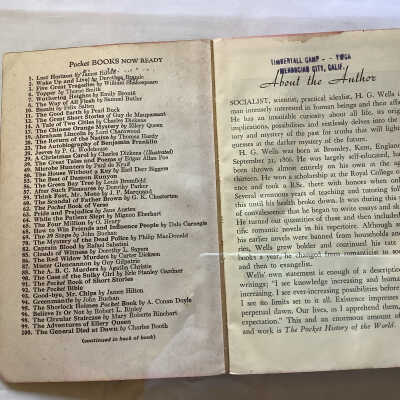 Pocket BOOKS NOW READY
1. Lost Horizon by James Hilton
2. Wake Up and Live! by Dorothea Brande
3. Five Great Tragedies by William Shakespeare
4. Topper by Thorne Smith
7. Wuthering Heights by Emily Brontë
8. The Way of All Flesh by Samuel Butler
11. The Good Earth by Pearl Buck
Great Short Stories of Guy de Maupassant
A Tale of Two Cities by Charles Dickens
The Chinese Orange Mystery by Ellery Queen
Abraham Lincoln by Lord Charnwood
The Return of the Native by Thomas Hardy
The Autobiography of Benjamin Franklin
Jeeves by P. G. Wodehouse
29. A Christmas Carol by Charles Dickens (Illustrated)
Great Tales and Poems of Edgar Allan Poe
Microbe Hunters by Paul de Kruif
The House Without a Key by Earl Derr Biggers
The Best of Damon Runyon
The Green Bay Tree by Louis Bromfield
After Such Pleasures by Dorothy Parker
Think Fast, Mr. Moto by J. P. Marquand
The Scandal of Father Brown by G. K. Chesterton
The Pocket Book of Verse
Pride and Prejudice by Jane Austen
While the Patient Slept by Mignon Eberhart
The Four Million by O. Henry
How to Win Friends and Influence People by Dale Carnegie
The 39 Steps by John Buchan
The Mystery of the Dead Police by Philip MacDonald
Captain Blood by Rafael Sabatini
Clouds of Witness by Dorothy L. Sayers
The Red Widow Murders by Carter Dickson
Mister Glencannon by Guy Gilpatric
The A. B. C. Murders by Agatha Christie
The Case of the Sulky Girl by Erle Stanley Gardner
91. The Pocket Book of Short Stories
92. The Pocket Bible
93. Good-bye, Mr. Chips by James Hilton
94. Greenmantle by John Buchan
95. The Sherlock Holmes Pocket Book by A. Conan Doyle
96. Believe It or Not by Robert L. Ripley
98. The Circular Staircase by Mary Roberts Rinehart
99. The Adventures of Ellery Queen
100. The General Died at Dawn by Charles Booth
(continued in back of book)
TIMBERTALL CAMP - - YMCA
MENDOCINO CITY, CALIF.
About the Author
SOCIALIST, scientist, practical idealist, H. G. Wells i
man intensely interested in human beings and their affai
He has an insatiable curiosity about all life, its orig
implications, possibilities and restlessly delves into the
tory and mystery of the past for truths that will light
usteress at the darker mystery of the future.
H. G. Wells was born in Bromley, Kent, England
September 21, 1866. He was largely self-educated, hav
been thrown almost entirely on his own at the age
thirteen. He won a scholarship at the Royal College o
ence and took a B.Sc. there with honors when only
Several strenuous years of teaching and tutoring follo
this until his health broke down. It was during this
of convalescence that he began to write essays and sho
He turned out quantities of these and then included
tific romantic novels in his repertoire. Although som
his earlier novels were banned from households and
ries, Wells grew bolder and continued his rate
books a year, he changed from romanticist to soc
and then to evangelist.
Wells' own statement is enough of a descriptio
writings; "I see knowing increasing and human
increasing, I see ever-increasing possibilities before
I see no limits set to it all. Existence impresses
perpetual dawn. Our lives, as I apprehend them,
expectation." This and an enormous amount of
and work is The Pocket History of the World.